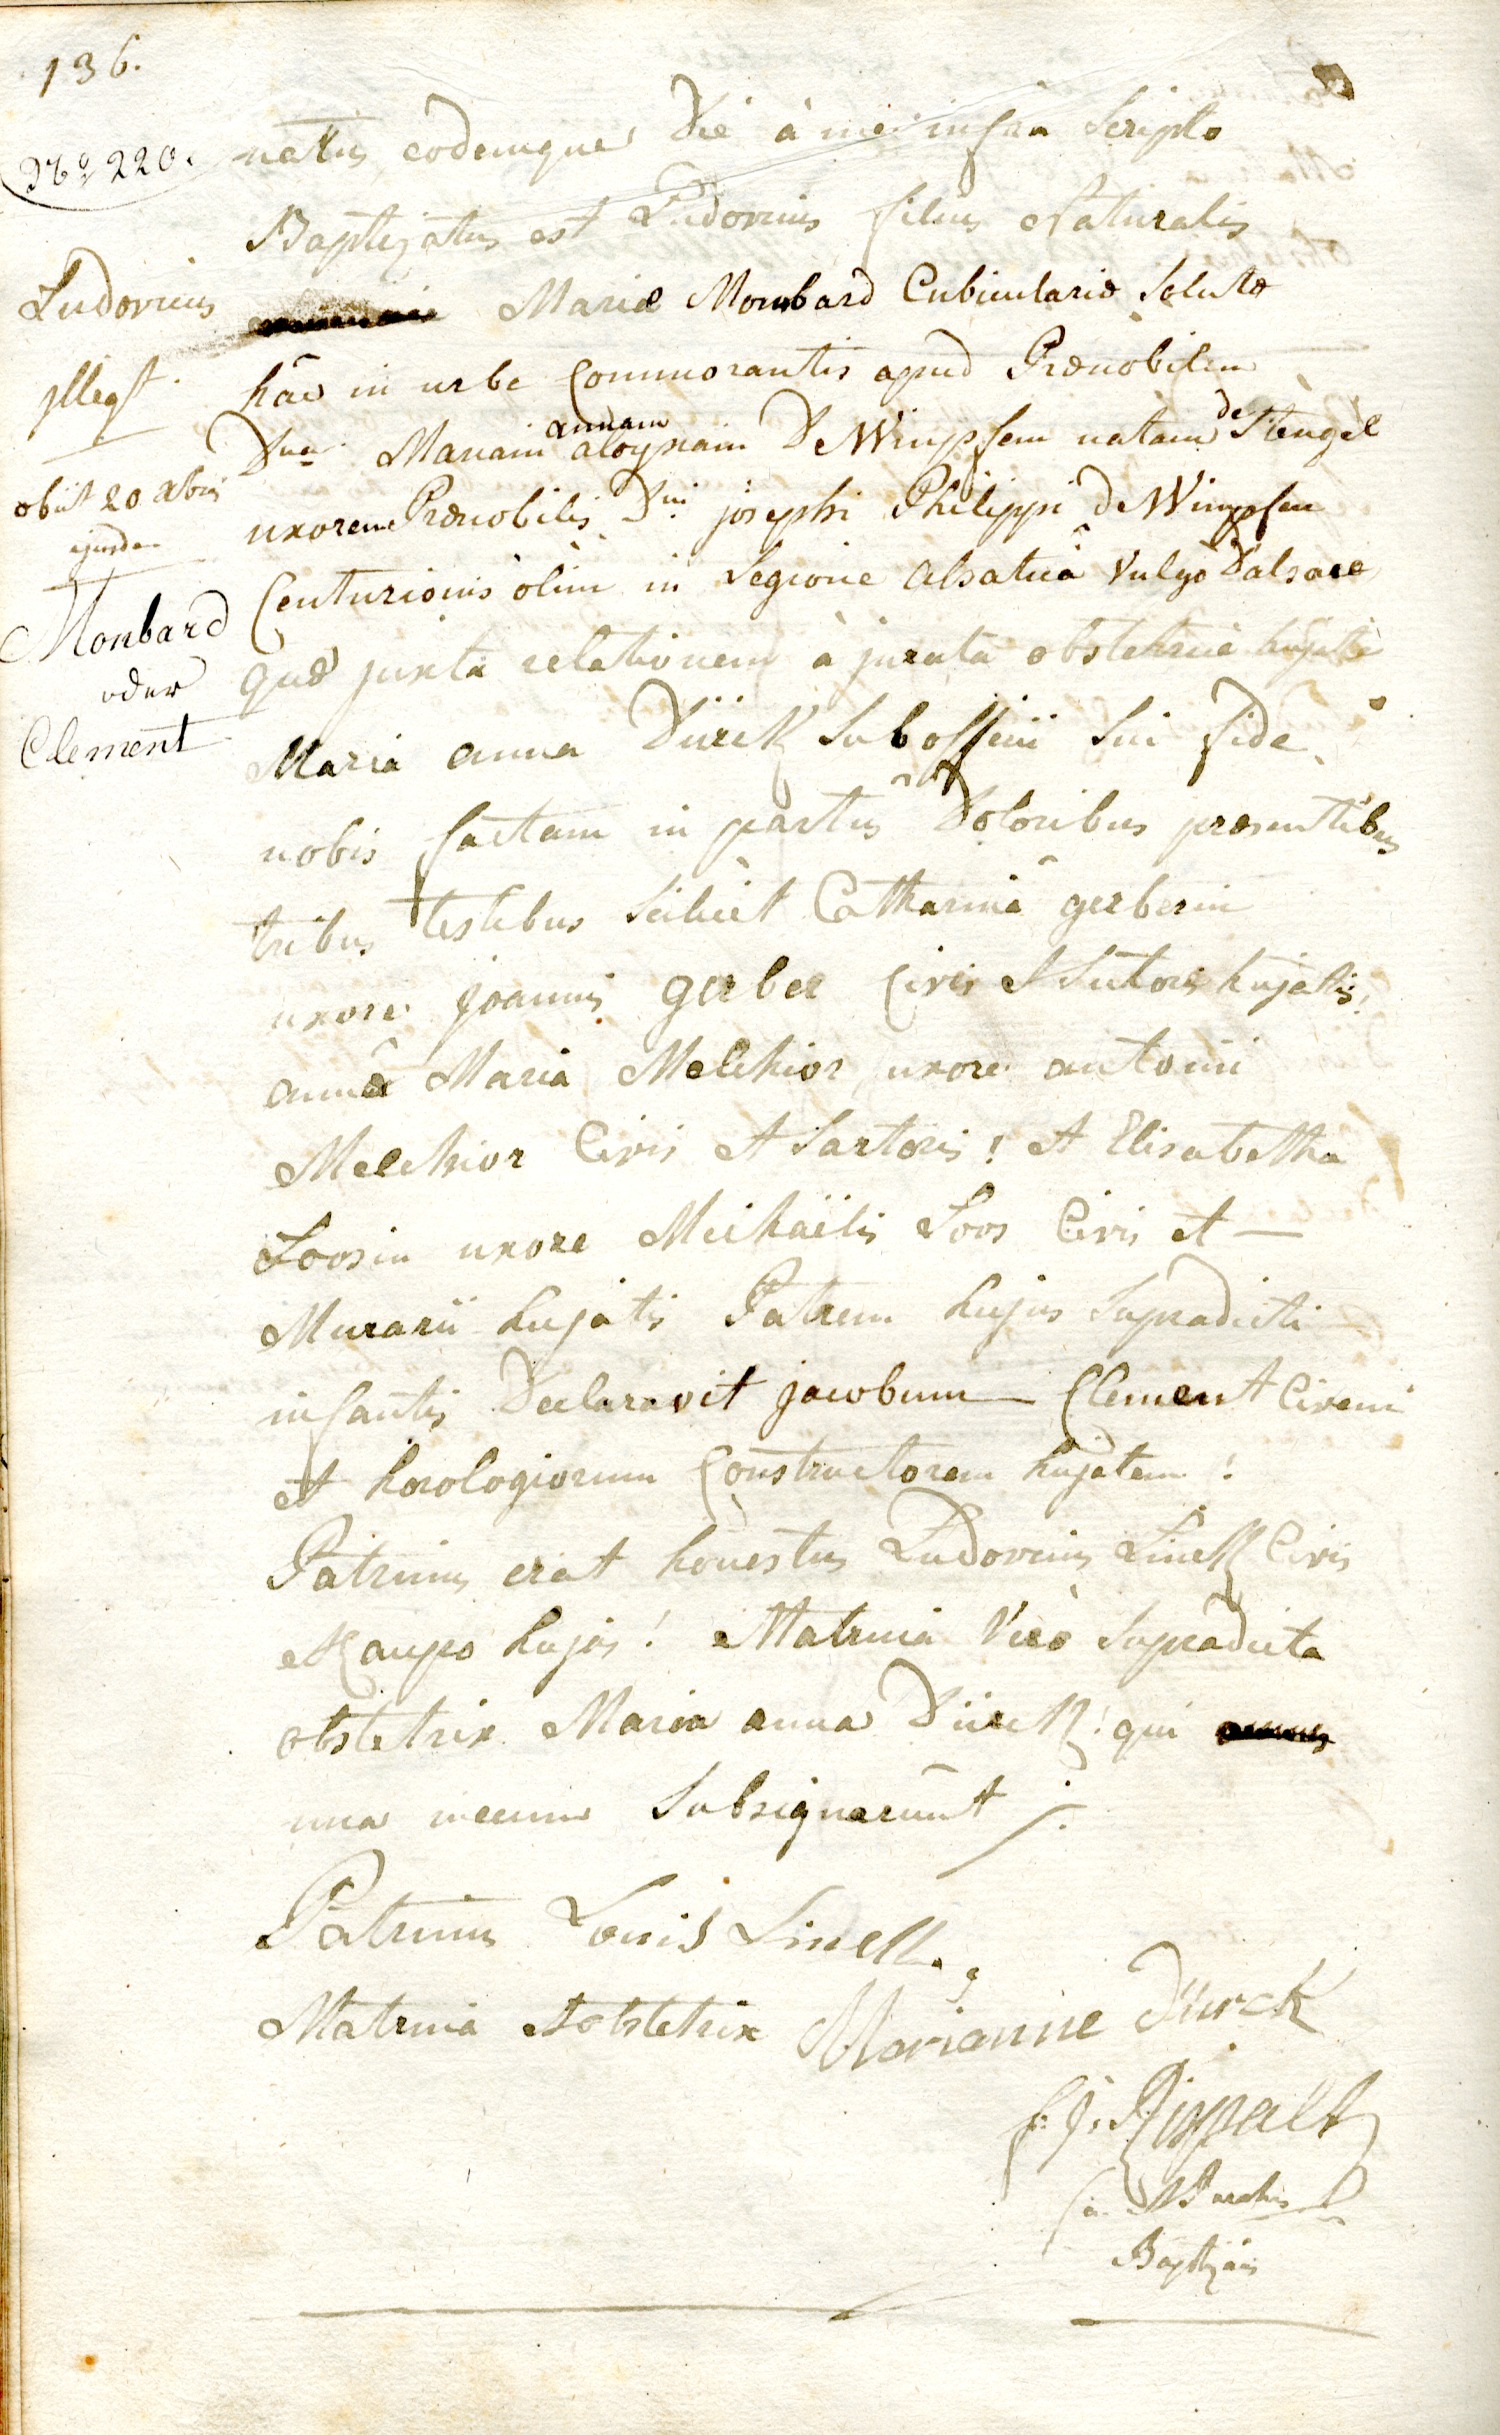 136.
Nº 220.
Ludovicus
illeg.
obiit 20 Xbris
ejusdem
Monbard
oder
Clement
natus eodemque Die à me infra Scripto
Baptizatus est Ludovicus filius Naturalis
Mariæ Mombard Cubiculariæ Solutæ
hâc in urbe Commorantis apud Prænobilem
Dnam Mariam annam aloysiam De Wimpfem natam de Stengel
uxorem Prænobilis Dni josephi Philippi De Wimpfen
Centurionis olim in Legione Alsaticâ Vulgò D'alsace
quæ juxta relationem à jurata obstetrice hujate
Maria anna Dürck sub officii sui fide
nobis factam in partûs Doloribus præsentibus
tribus testibus scilicet Catharinâ gerberin
uxore joannis gerber Civis et Sutoris hujatis,
annâ Maria Melchior uxore antonii
Melchior Civis et Sartoris! et Elisabetha
Loosin uxore Michaëlis Loos Civis et —
Murarii hujatis Patrem hujus supradicti
infantis Declaravit jacobum Clement Civem
et horologiorum Constructorem hujatem!
Patrinus erat honestus Ludovicus Linck Civis
et Caupo hujas! Matrina Verò supradicta
obstetrix Maria anna Dürck! qui
una mecum Subsignarunt
Patrinus Louis Linck.
Matrina et obstetrix Marianne Durck
Baptizans